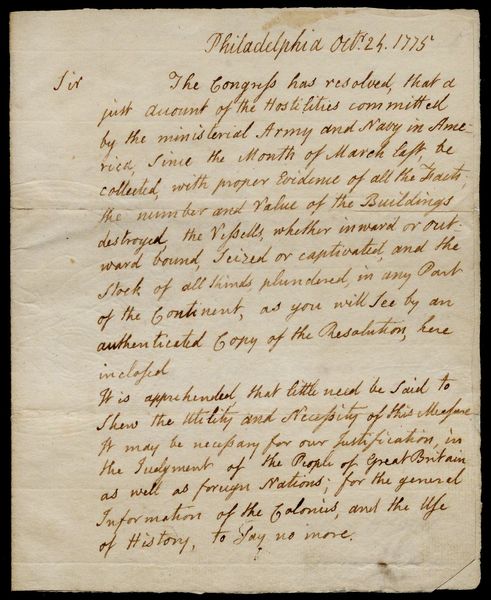 Philadelphia Octr. 24. 1775
Sir The Congress has resolved, that a
just account of the Hostilities committed
by the ministerial Army and Navy in Ame-
rica, Since the Month of March last, be
collected, with proper Evidence of all the Facts,
the number and Value of the Buildings
destroyed, the Vessells, whether inward or out-
ward bound, Seized or captivated, and the
Stock of all Kinds plundered, in any Part
of the Continent, as you will See by an
authenticated Copy of the Resolution, here
inclosed
It is apprehended, that little need be Said to
Shew the Utility and Necessity of this Measure
It may be necessary for our justification, in
the Judgment of the People of Great Britain
as well as foreign Nations; for the general
Information of the Colonies, and the Use
of History, to Say no more.